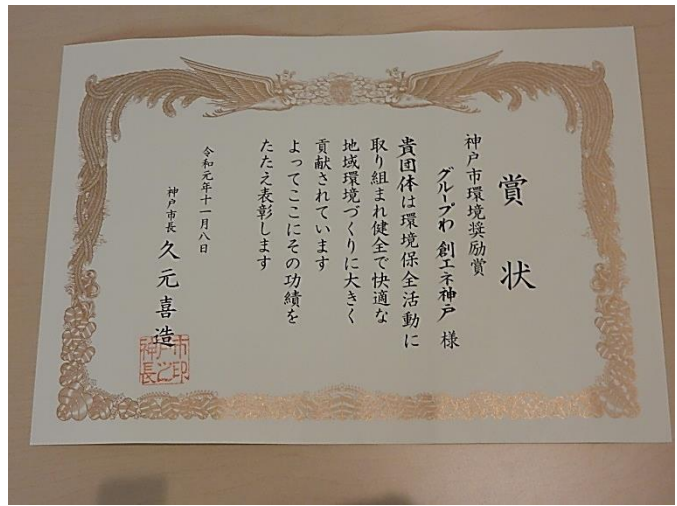 賞状
神戸市環境奨励賞
グループわ 創エネ神戸 様
貴団体は環境保全活動に
取り組まれ健全で快適な
地域環境づくりに大きく
貢献されています
よってここにその功績を
たたえ表彰します
令和元年十一月八日
神戸市長 久元喜造
神戸市長之印